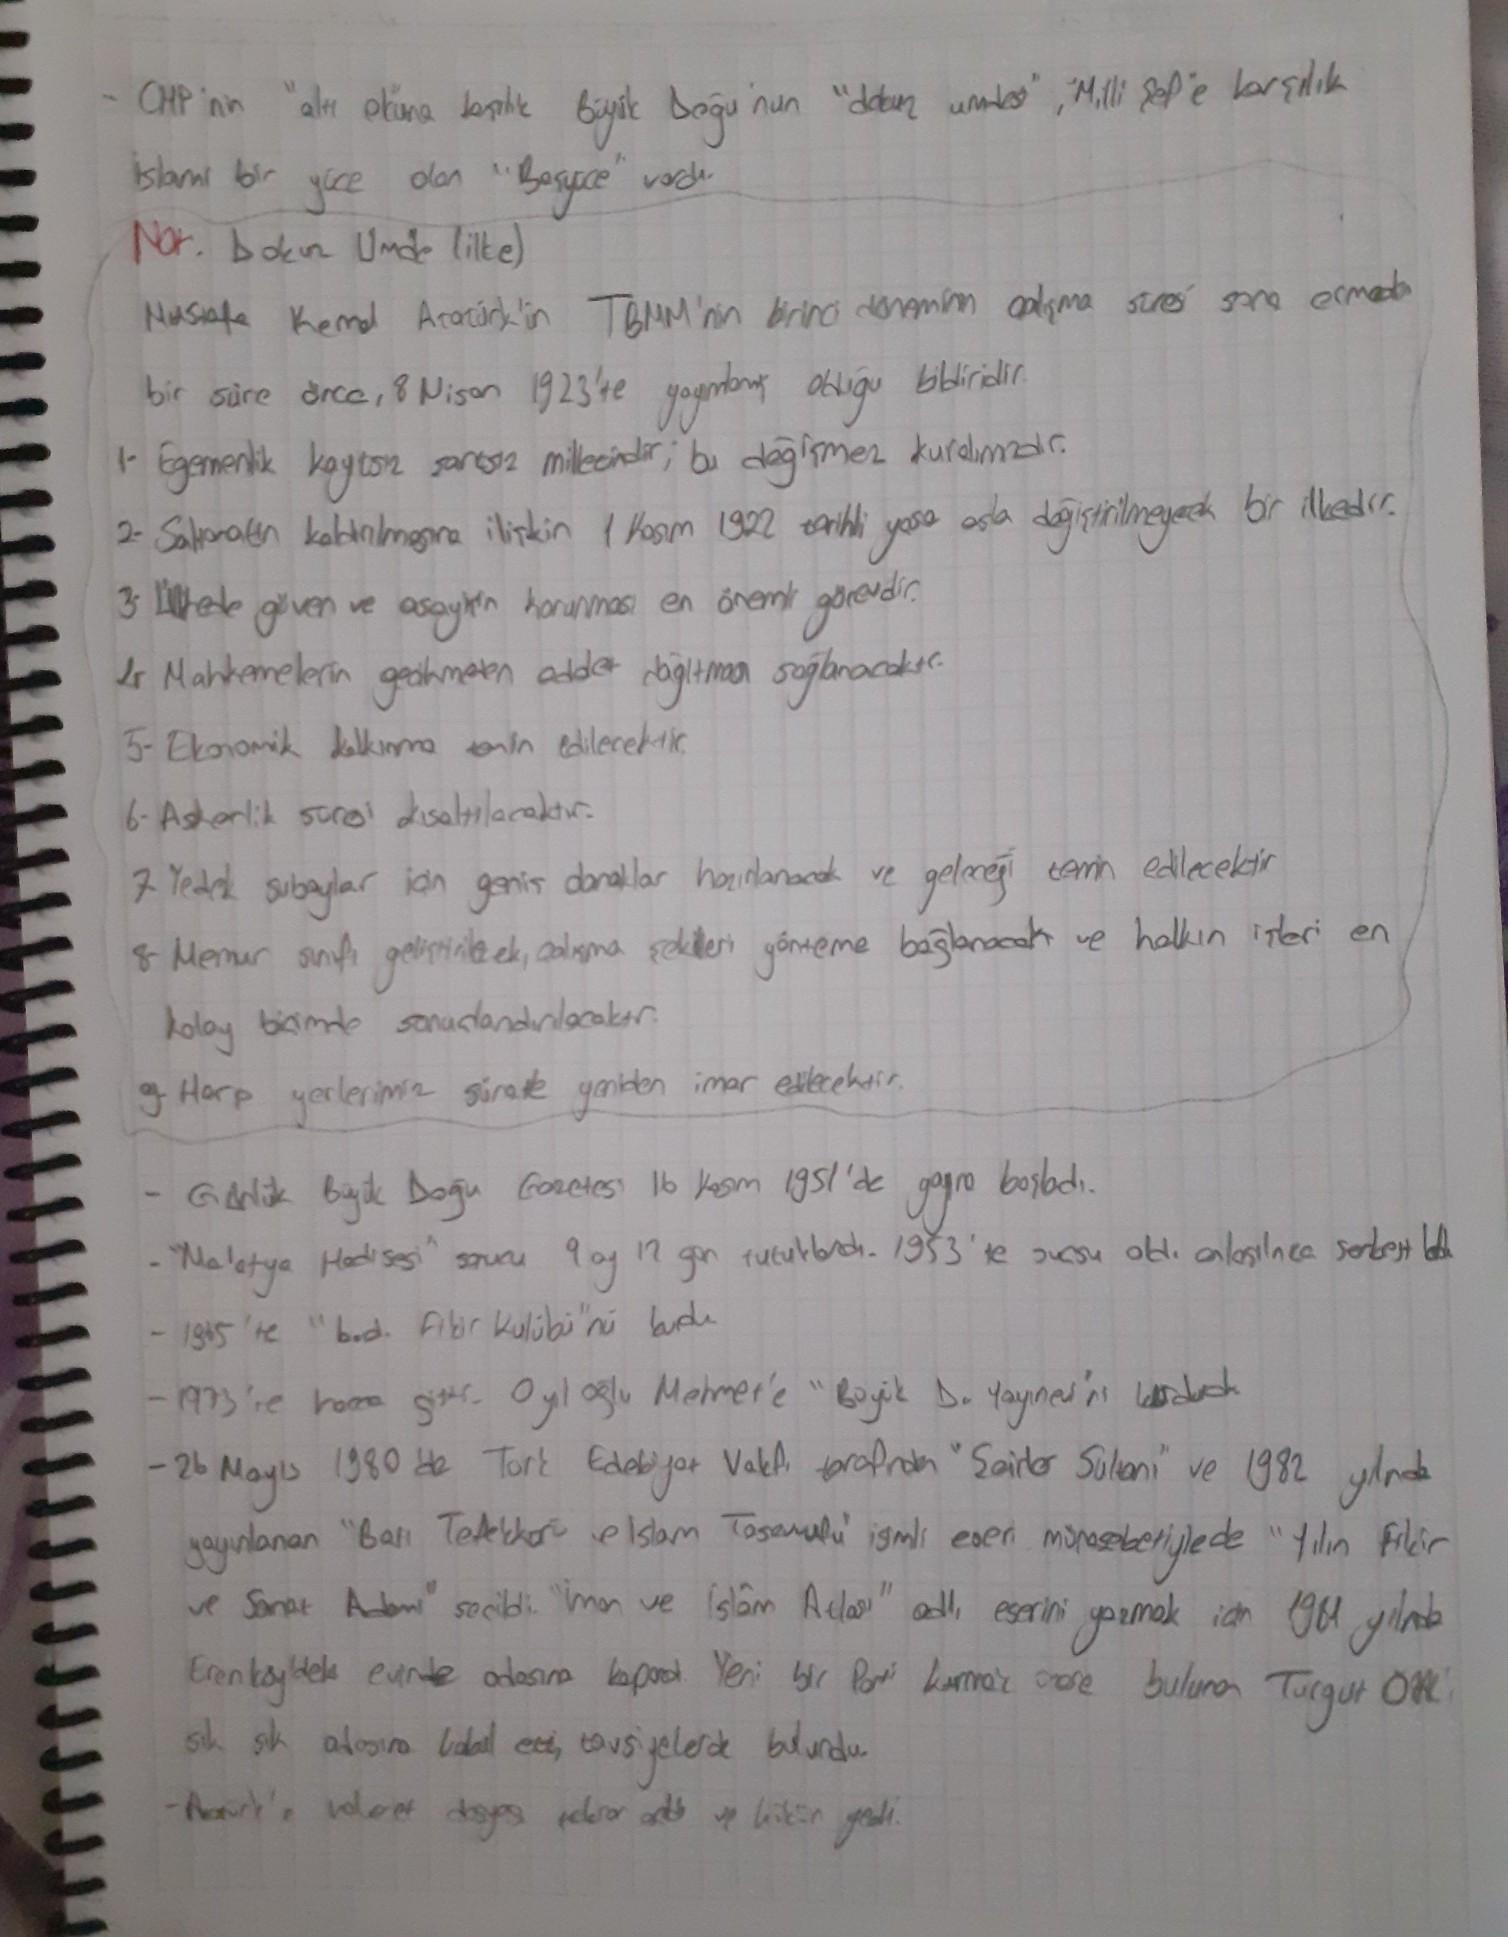 - CHP'nin "altı okuna karşılık Büyük Doğu'nun "dokuz umdesi", "Milli Şef'e karşılık
İslami bir yüce olan "Başyüce" vardı.
Not. Dokuz Umde (ilke)
Mustafa Kemal Atatürk'ün TBMM'nin birinci döneminin çalışma süresi sona ermeden
bir süre önce, 8 Nisan 1923'te yayınlamış olduğu bildiridir.
1- Egemenlik kayıtsız şartsız milletindir; bu değişmez kuralımızdır.
2- Saltanatın kaldırılmasına ilişkin 1 Kasım 1922 tarihli yasa asla değiştirilmeyecek bir ilkedir.
3- Ülkede güven ve asayişin korunması en önemli görevdir.
4- Mahkemelerin gecikmeden adalet dağıtması sağlanacaktır.
5- Ekonomik kalkınma temin edilecektir.
6- Askerlik süresi kısaltılacaktır.
7- Yedek subaylar için geniş olanaklar hazırlanacak ve geleceği temin edilecektir
8- Memur sınıfı geliştirilecek, çalışma şekilleri yönteme bağlanacak ve halkın işleri en
kolay biçimde sonuçlandırılacaktır.
9- Harp yerlerimiz süratle yeniden imar edilecektir.
- Günlük Büyük Doğu Gazetesi 16 Kasım 1951'de yayına başladı.
- "Malatya Hadisesi" sonucu 9 ay 12 gün tutuklandı. 1953'te suçsuz anlaşılınca serbest
- 1965'te "b.d. Fikir Kulübü"nü kurdu
- 1973'te hacca gitti. O yıl oğlu Mehmet'e "Büyük D. Yayınevi'ni kurdurdu
- 26 Mayıs 1980'de Türk Edebiyat Vakfı tarafından "Şairler Sultanı" ve 1982 yılında
yayınlanan "Batı Tefekkürü ve İslam Tasavvufu" isimli eseri münasebetiylede "Yılın Fikir
ve Sanat Adamı" seçildi. "İman ve İslâm Atlası" adlı eserini yazmak için 1981 yılında
Erenköy'deki evinde odasına kapandı. Yeni bir Parti kurmak üzere bulunan Turgut Özal'ı
sık sık odasına kabul etti, tavsiyelerde bulundu.
- Atatürk'e hakaret dosyası tekrar açıldı ve hüküm yedi.